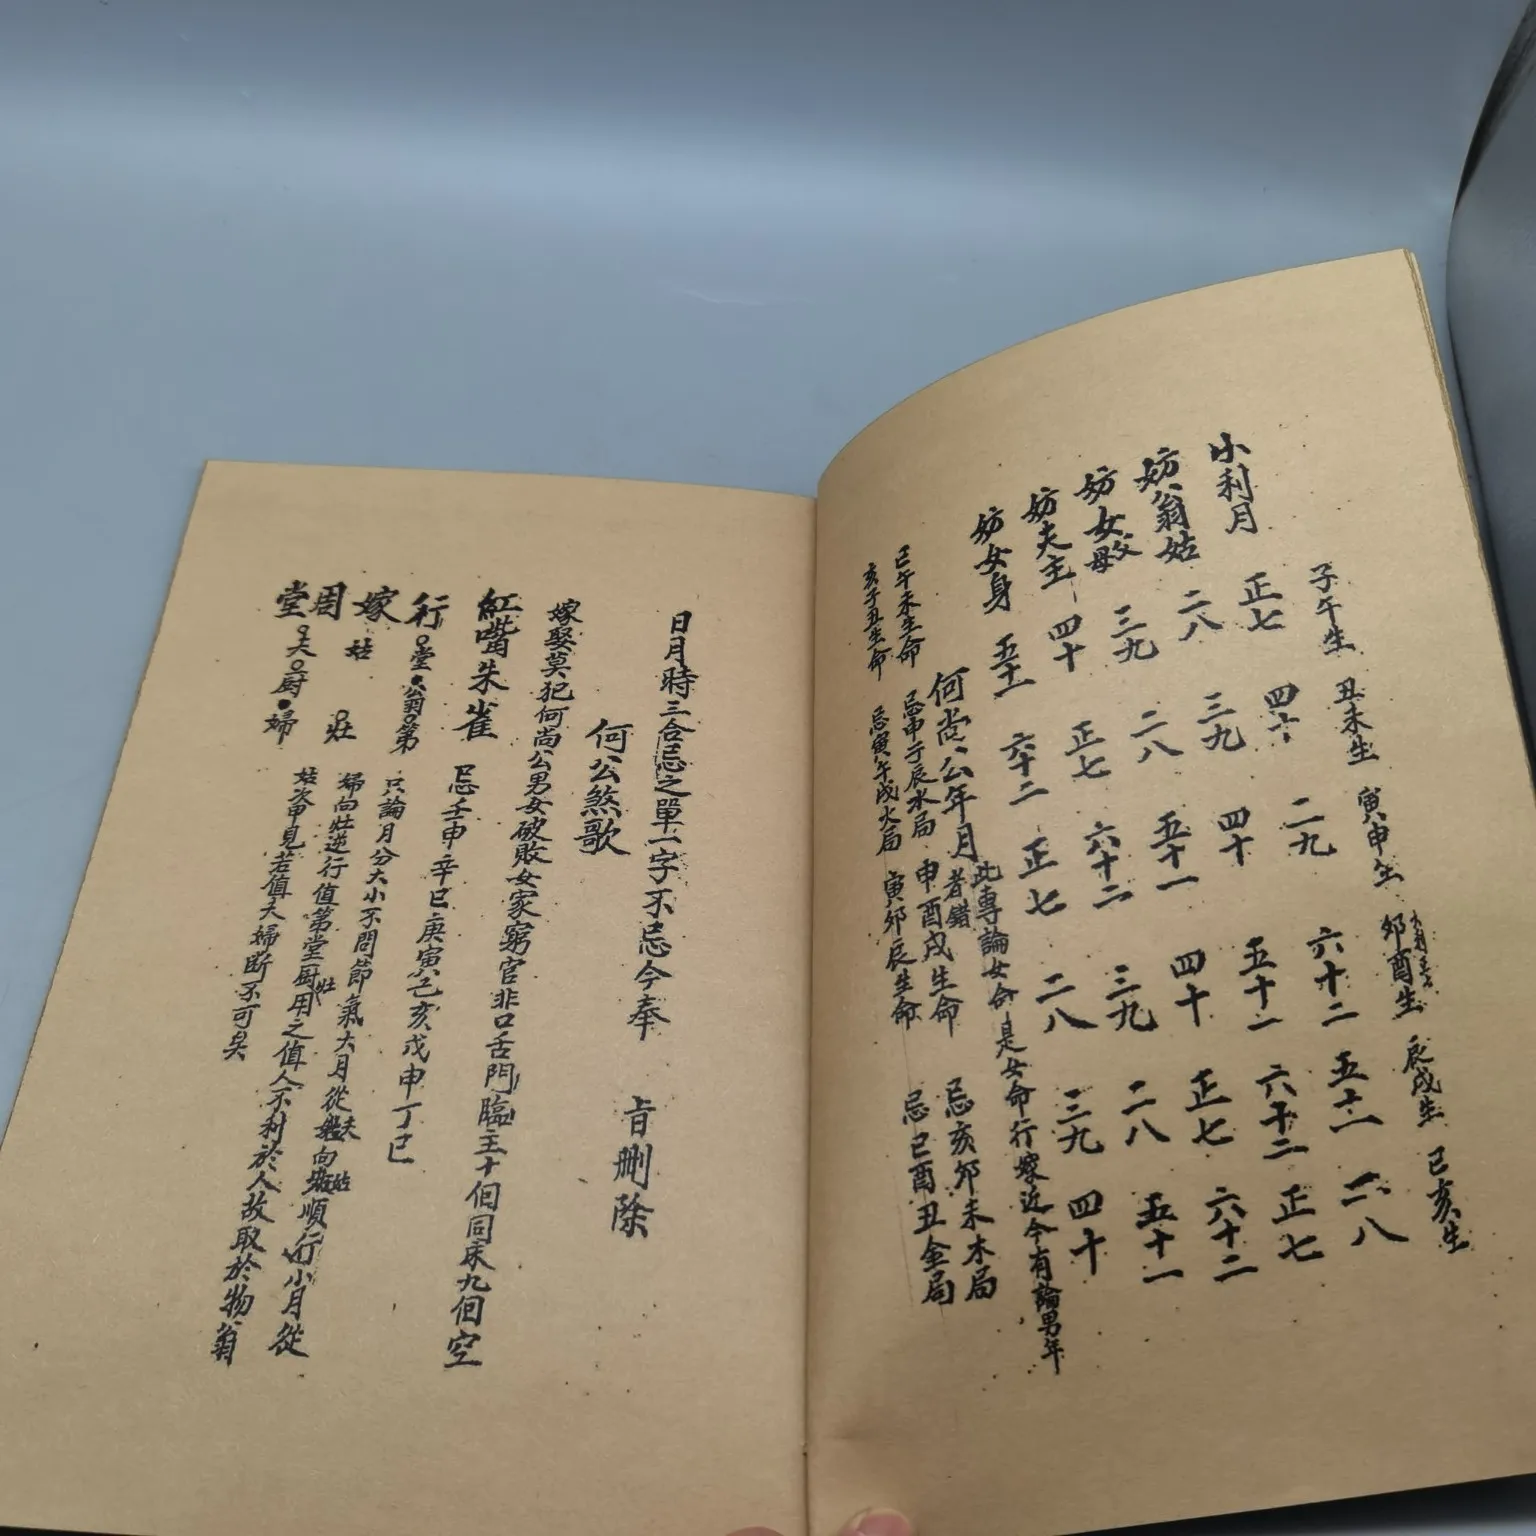 子午生 丑未生 寅申生 卯酉生 辰戌生 巳亥生
小利月 正七 四十 二九 六十二 五十一 二八
妨翁姑 二八 三九 四十 五十一 六十二 正七
妨女父母 三九 二八 五十一 四十 正七 六十二
妨夫主 四十 正七 六十二 三九 二八 五十一
妨女身 五十一 六十二 正七 二八 三九 四十
何尚公年月 此專論女命是女命行嫁近今有論男年
者錯
巳午未生命 忌申子辰水局 申酉戌生命 忌亥卯未木局
亥子丑生命 忌寅午戌火局 寅卯辰生命 忌巳酉丑金局
日月時三合忌之單一字不忌今奉
旨刪除
何公煞歌
嫁娶莫犯何尚公男女破敗女家窮官非口舌門臨主十個同床九個空
紅嘴朱雀 忌壬申辛巳庚寅己亥戊申丁巳
行嫁周堂
堂 翁 第
姑 灶
夫 厨 婦
只論月分大小不問節氣大月從夫向姑順行小月從
婦向灶逆行值第堂厨灶用之值人不利於人故取於物翁
姑次申見若值夫婦斷不可矣